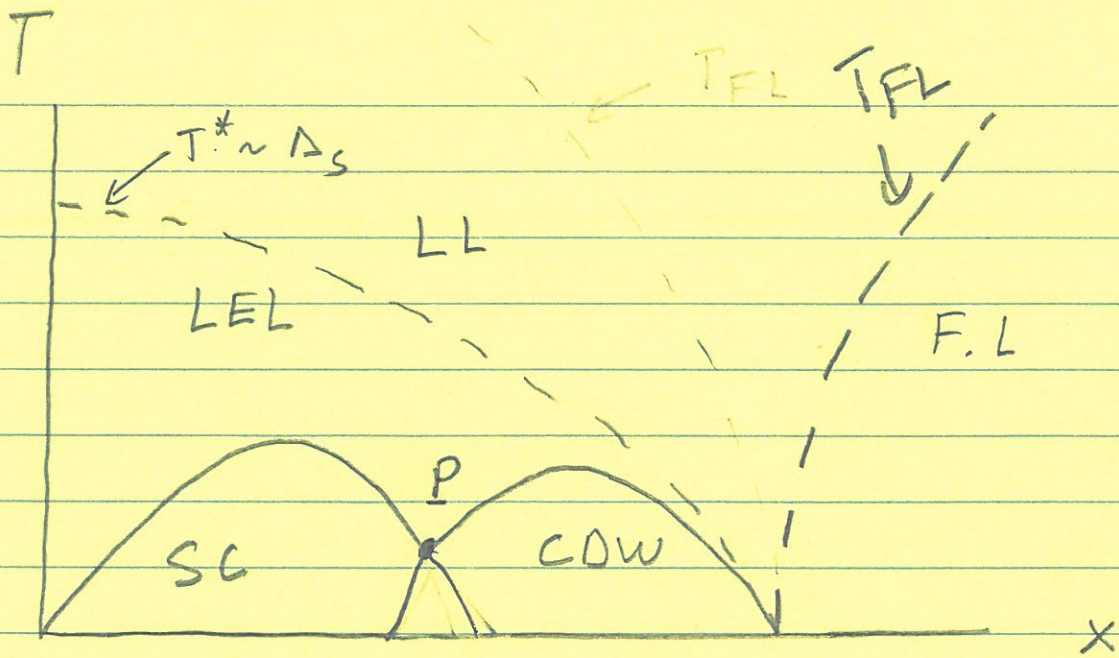 T
T_FL
T_FL
T* ~ Δ_S
LL
LEL
F.L
P
SC
CDW
x